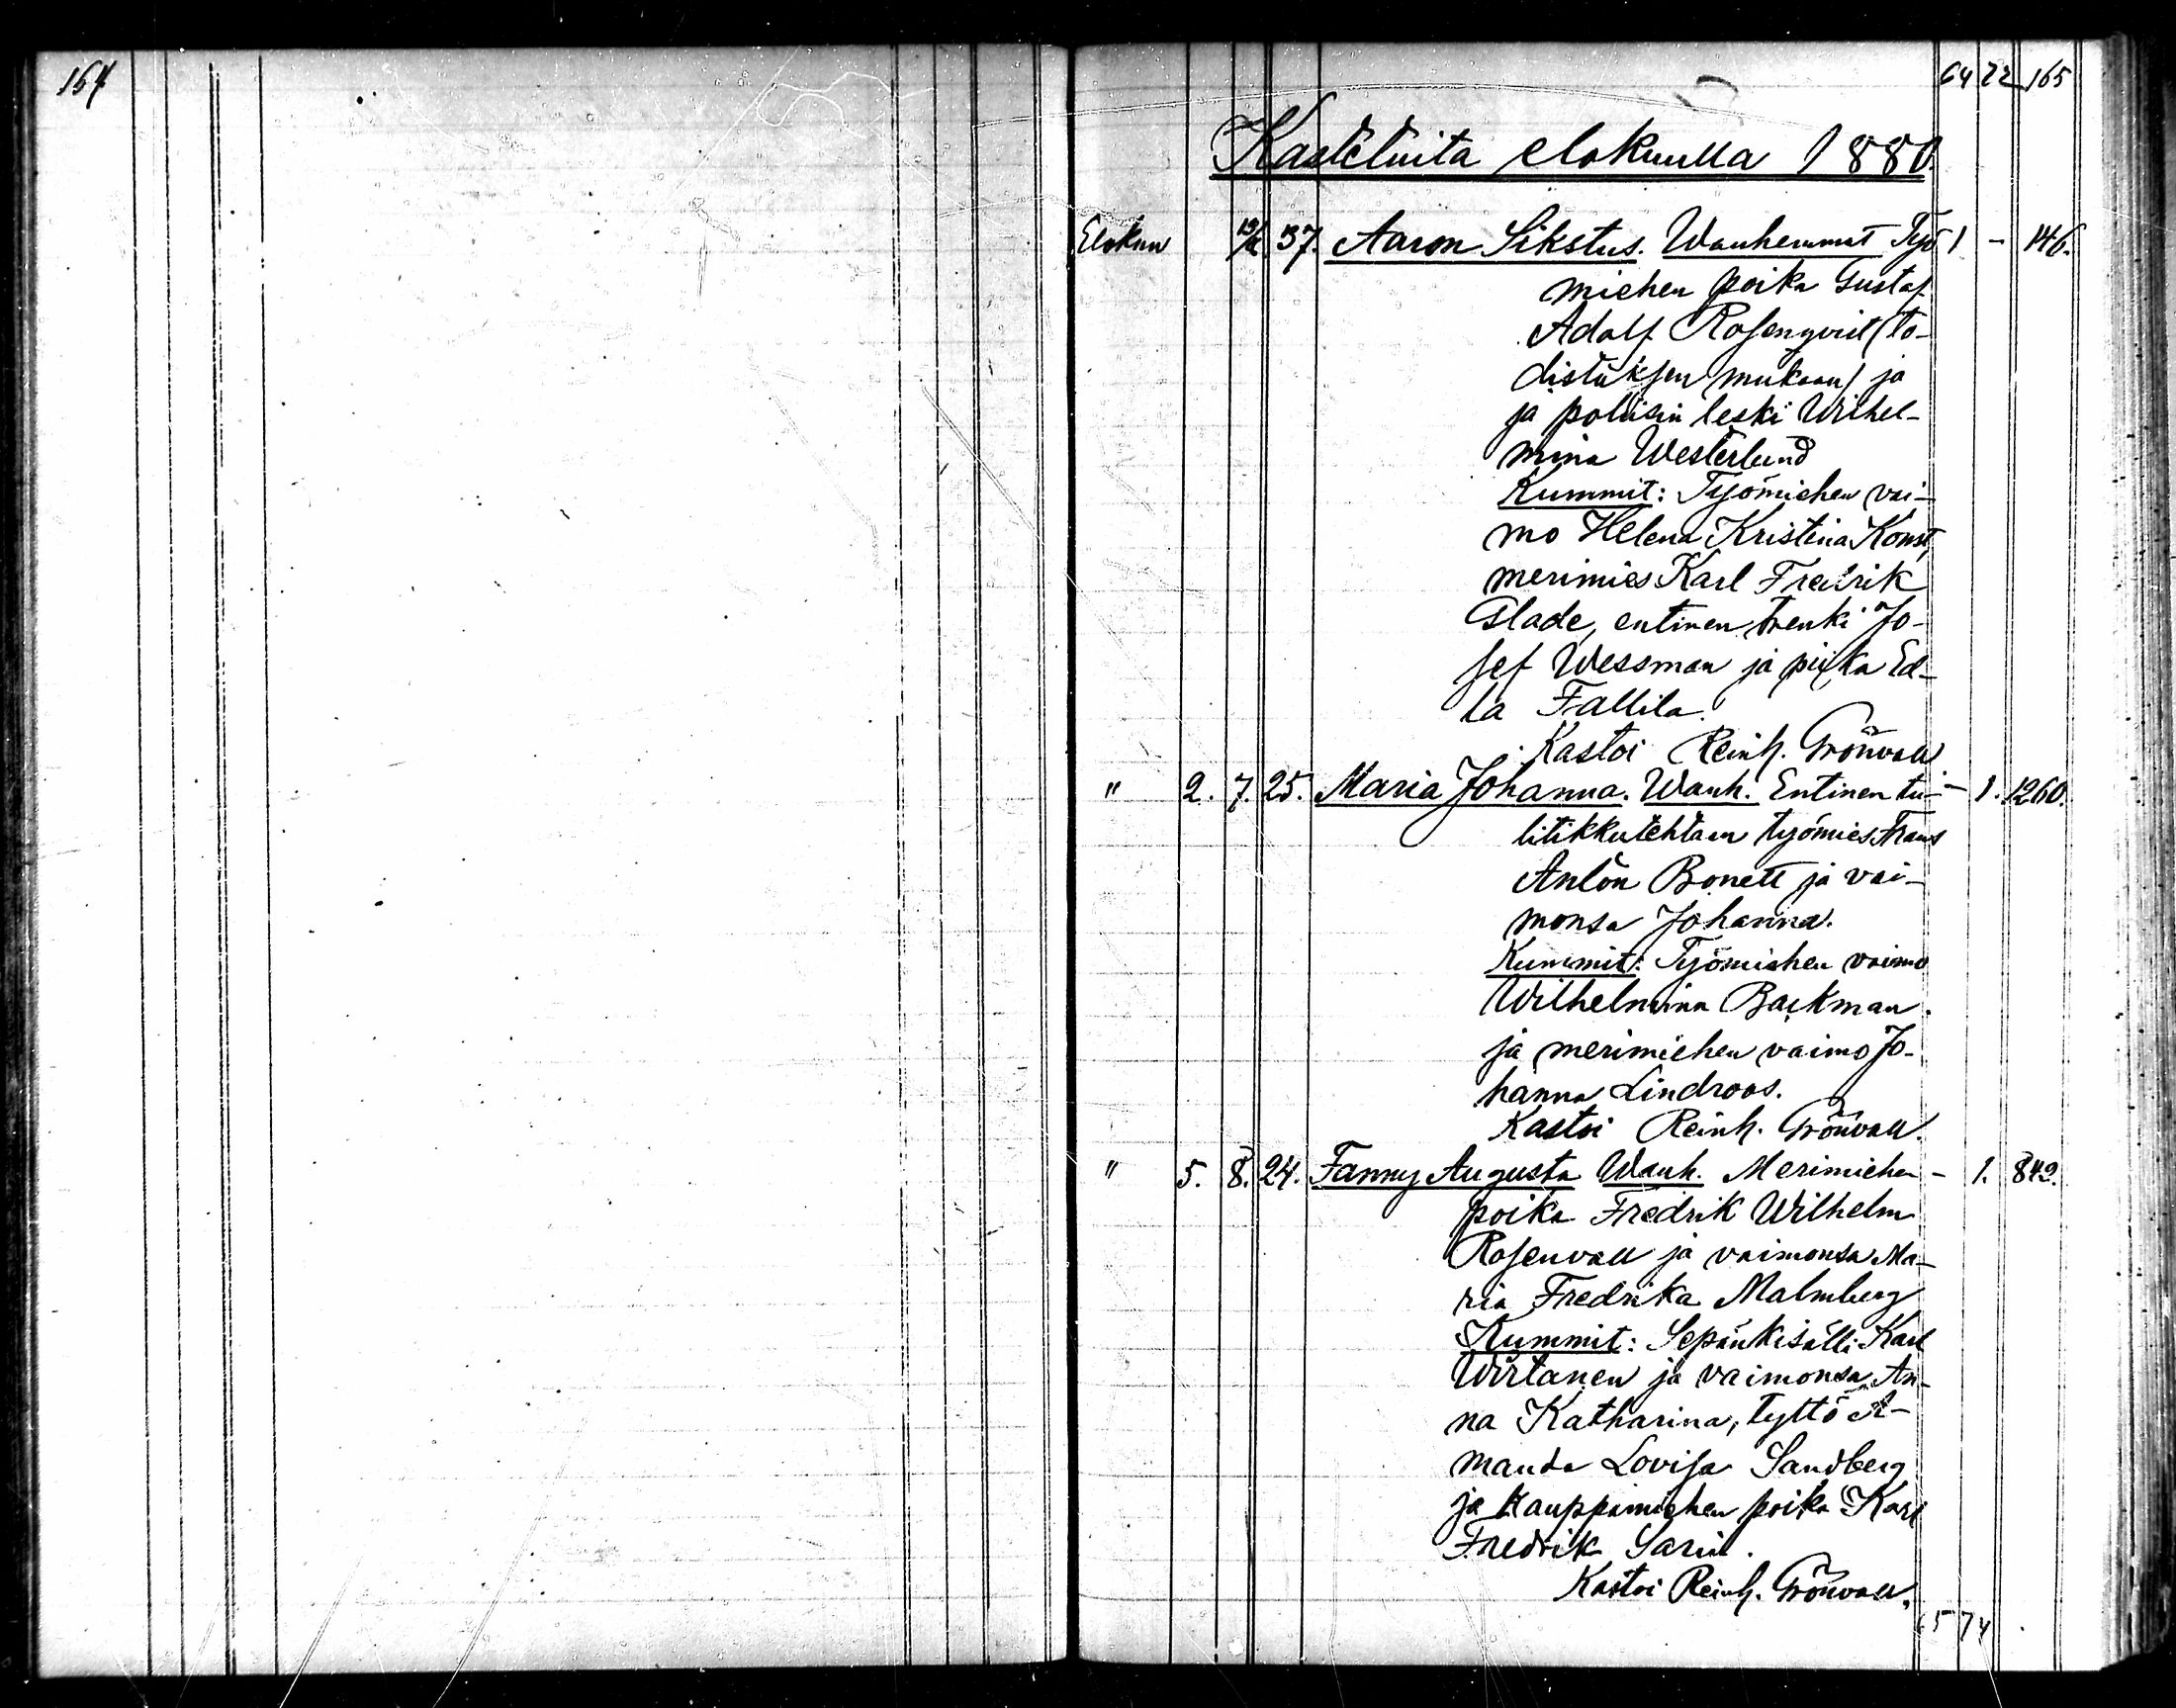 164
64 72 165
Kastetuita elokuulla 1880.
Elokuu 37. Aaron Sikstus. Wanhemmat Työ 1 - 146.
miehen poika Gustaf
Adolf Rosenqvist (to-
distuksen mukaan) ja
ja poliisin leski Wilhel-
mina Westerlund
Kummit: Työmiehen vai-
mo Helena Kristina Konst,
merimies Karl Fredrik
Glade, entinen trenki Jo-
sef Wessman ja piika Ed-
la Fallila.
Kastoi Reinh. Grönvall
" 2. 7. 25. Maria Johanna. Wanh. Entinen tu- - 1. 1260.
litikkutehtaan työmies Frans
Anton Bonett ja vai-
monsa Johanna.
Kummit: Työmiehen vaimo
Wilhelmina Backman
ja merimiehen vaimo Jo-
hanna Lindroos.
Kastoi Reinh. Grönvall.
" 5. 8. 24. Fanny Augusta Wanh. Merimiehen - 1. 842.
poika Fredrik Wilhelm
Rosenvall ja vaimonsa Ma-
ria Fredrika Malmberg
Kummit: Sepänkisälli Karl
Wirtanen ja vaimonsa An-
na Katharina, tyttö A-
manda Lovisa Sandberg
ja kauppamiehen poika Karl
Fredrik Sarin.
Kastoi Reinh. Grönvall.
65 74